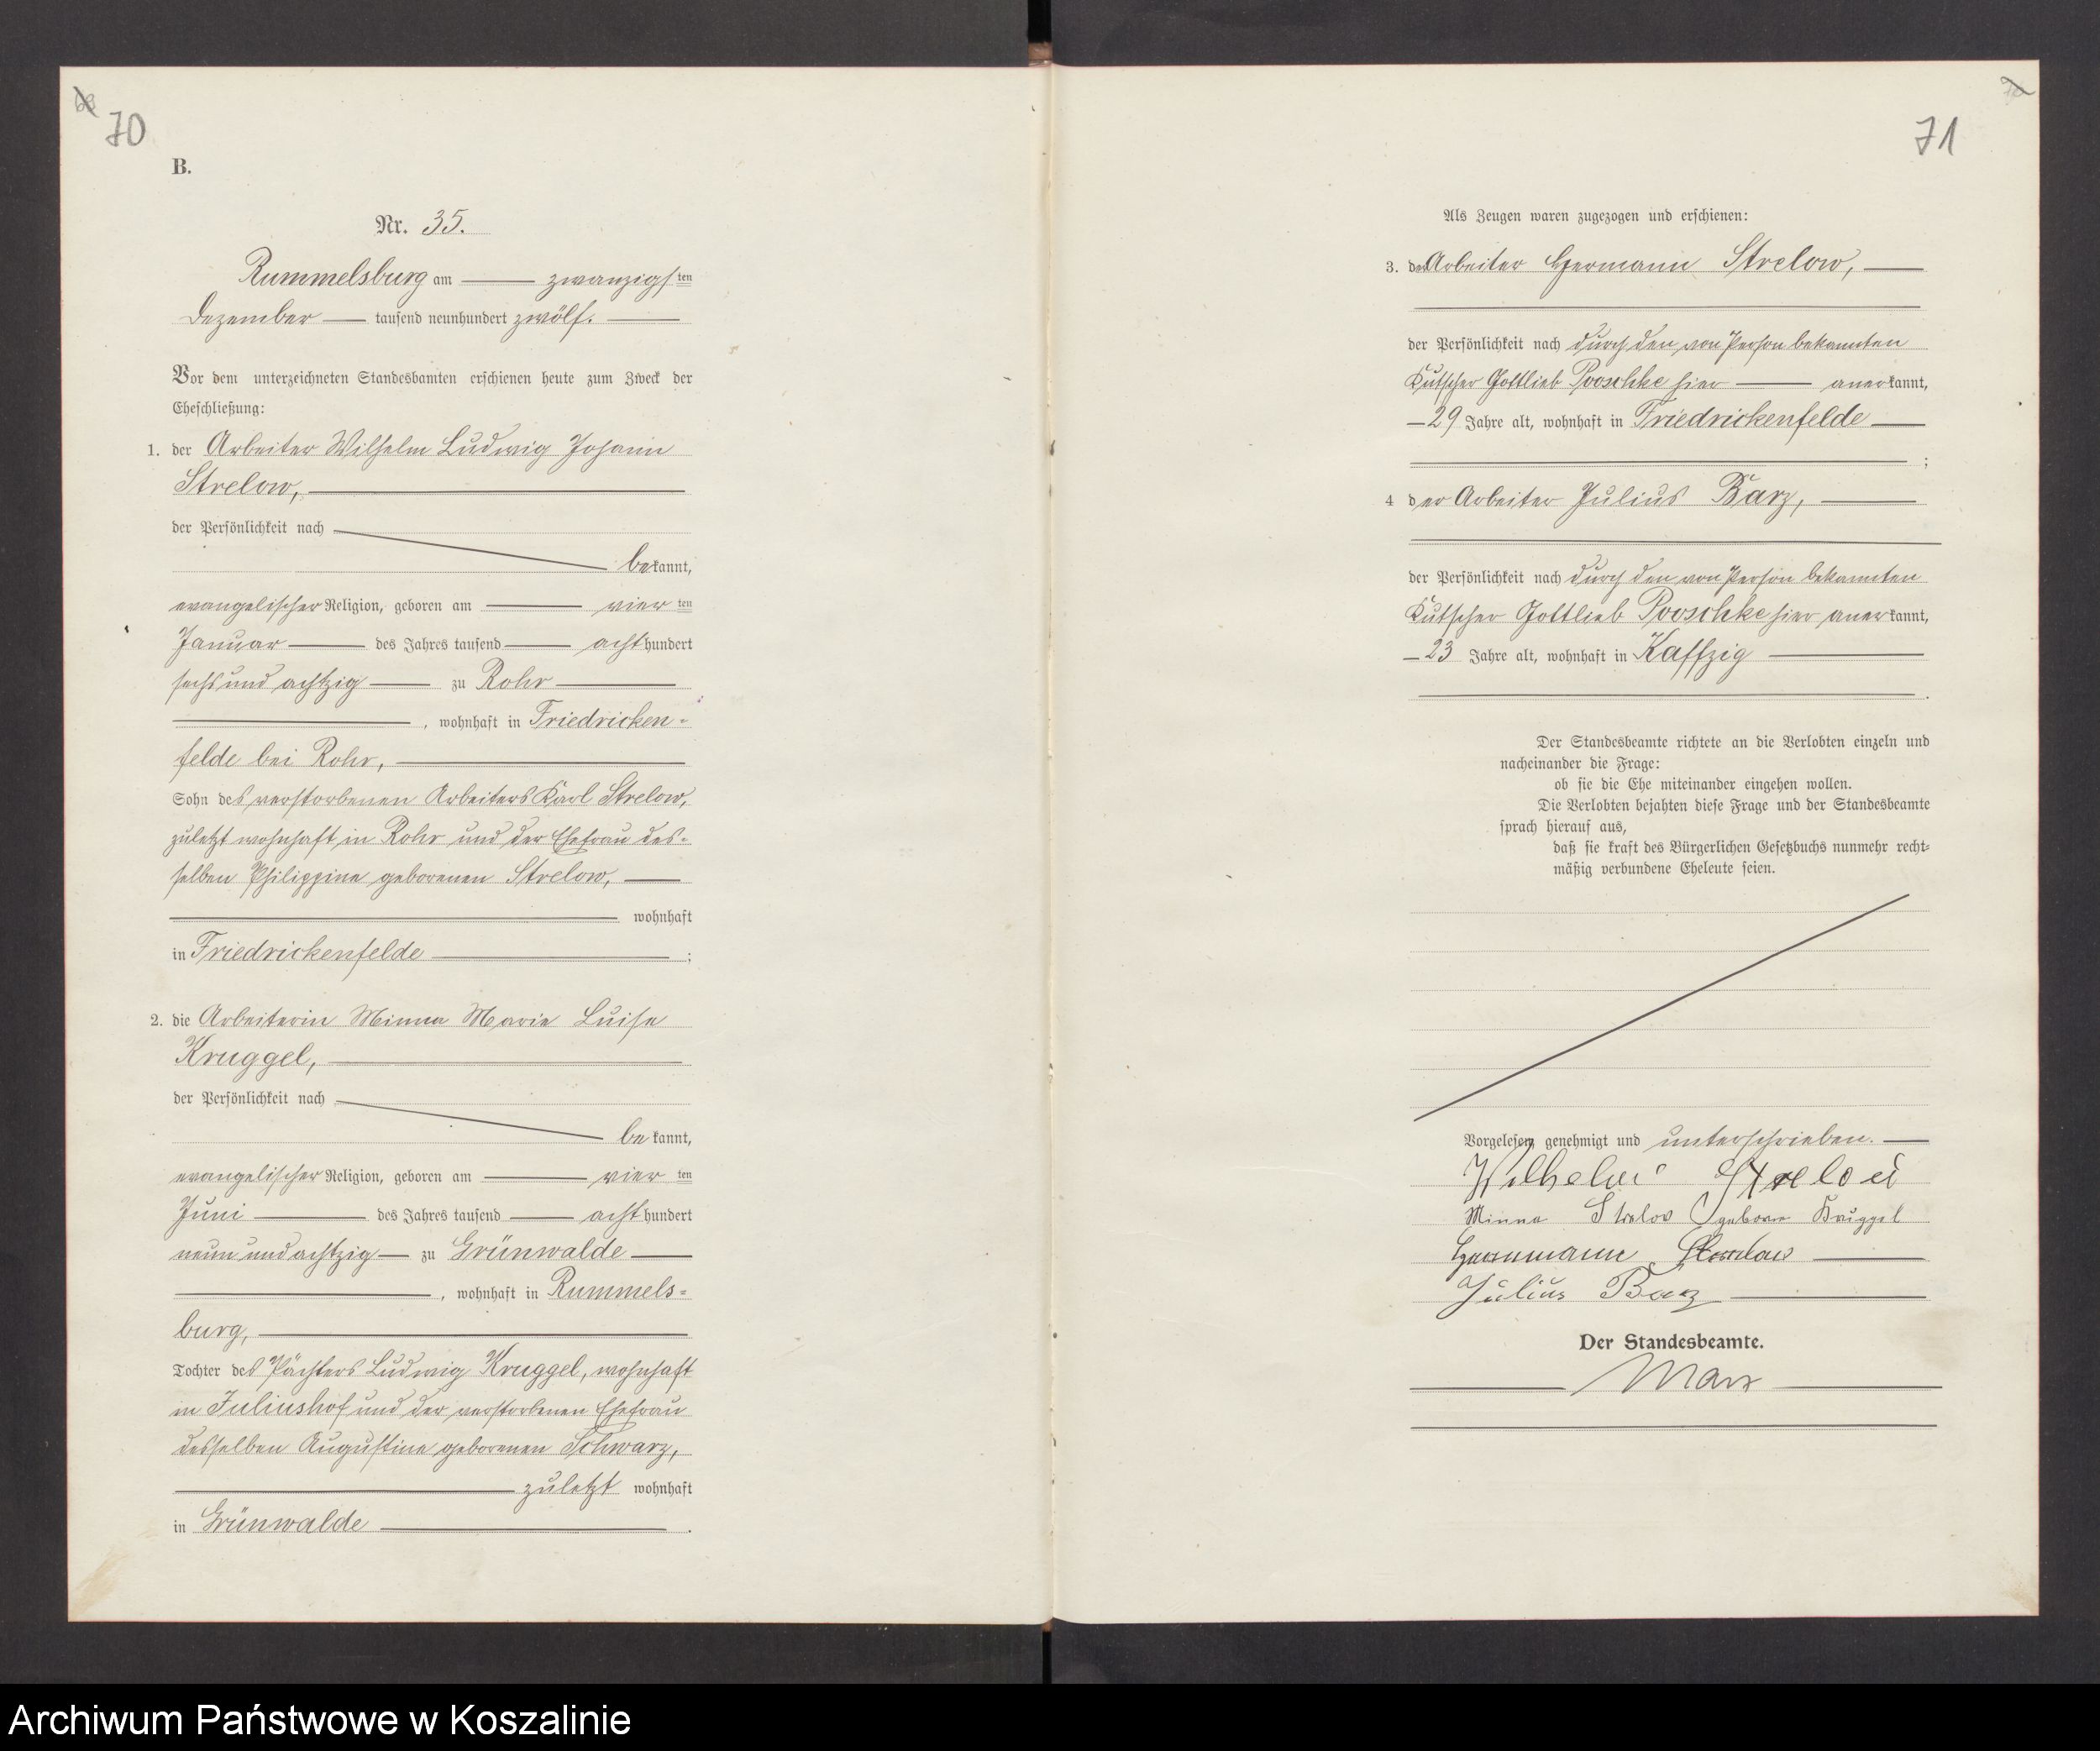 70
B.
Nr. 35.
Rummelsburg am zwanzigsten
Dezember tausend neunhundert zwölf.
Vor dem unterzeichneten Standesbamten erschienen heute zum Zweck der
Eheschließung:
1. der Arbeiter Wilhelm Ludwig Johann
Strelow,
der Persönlichkeit nach
bekannt,
evangelischer Religion, geboren am vierten
Januar des Jahres tausend achthundert
sechs und achtzig zu Rohr
, wohnhaft in Friedricken-
felde bei Rohr,
Sohn des verstorbenen Arbeiters Karl Strelow,
zuletzt wohnhaft in Rohr und der Ehefrau des-
selben Philippine geborenen Strelow,
wohnhaft
in Friedrickenfelde ;
2. die Arbeiterin Minna Marie Luise
Kruggel,
der Persönlichkeit nach
bekannt,
evangelischer Religion, geboren am vierten
Juni des Jahres tausend achthundert
neun und achtzig zu Grünwalde
, wohnhaft in Rummels-
burg,
Tochter des Pächters Ludwig Kruggel, wohnhaft
in Juliushof und der verstorbenen Ehefrau
desselben Augustine geborenen Schwarz,
zuletzt wohnhaft
in Grünwalde .
71
Als Zeugen waren zugezogen und erschienen:
3. der Arbeiter Hermann Strelow,
der Persönlichkeit nach durch den von Person bekannten
Kutscher Gottlieb Pooschke hier anerkannt,
29 Jahre alt, wohnhaft in Friedrickenfelde
;
4 der Arbeiter Julius Barz,
der Persönlichkeit nach durch den von Person bekannten
Kutscher Gottlieb Pooschke hier anerkannt,
23 Jahre alt, wohnhaft in Kaffzig
.
Der Standesbeamte richtete an die Verlobten einzeln und
nacheinander die Frage:
ob sie die Ehe miteinander eingehen wollen.
Die Verlobten bejahten diese Frage und der Standesbeamte
sprach hierauf aus,
daß sie kraft des Bürgerlichen Gesetzbuchs nunmehr recht-
mäßig verbundene Eheleute seien.
Vorgelesen, genehmigt und unterschrieben.
Wilhelm Strelow
Minna Strelow geboren Kruggel
Herrmann Strelow
Julius Barz
Der Standesbeamte.
Marx
Archiwum Państwowe w Koszalinie